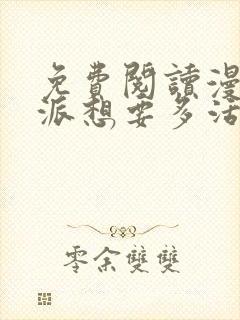 免費閱讀漫
派想要多活
零余雙雙